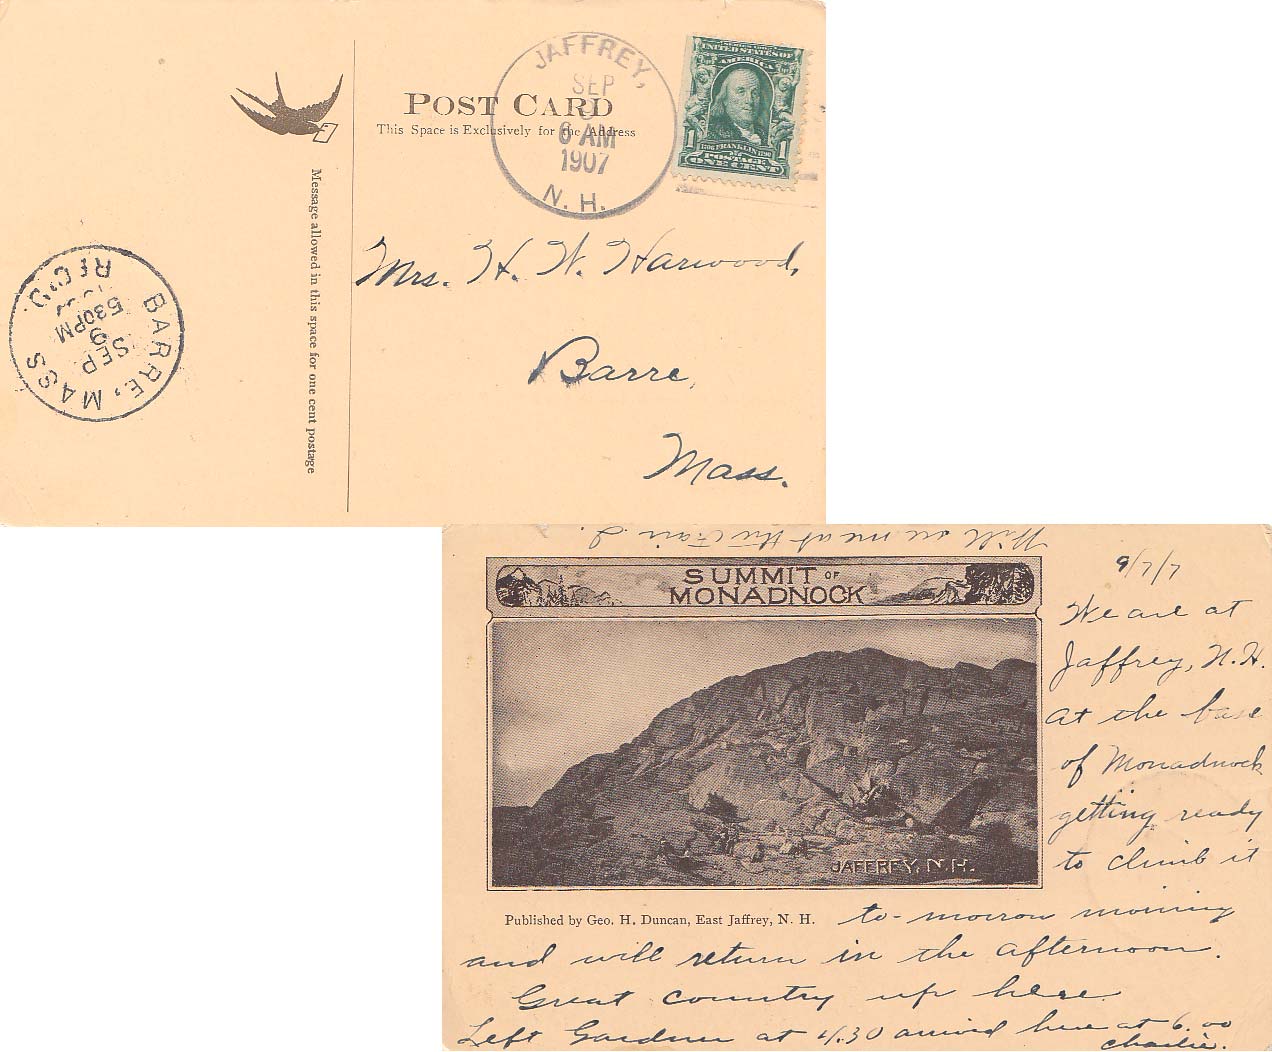 POST CARD
This Space is Exclusively for the Address
Message allowed in this space for one cent postage
JAFFREY,
SEP
6 AM
1907
N. H.
UNITED STATES OF
AMERICA
1 1
1706 FRANKLIN 1790
POSTAGE
ONE CENT
BARRE, MASS
SEP
9
530PM
REC'D.
Mrs. H. W. Harwood,
Barre,
Mass.
Will see me at the Fair
SUMMIT OF
MONADNOCK
JAFFREY, N.H.
Published by Geo. H. Duncan, East Jaffrey, N. H.
9/7/7
We are at
Jaffrey, N.H.
at the base
of Monadnock
getting ready
to climb it
to-morrow morning
and will return in the afternoon.
Great country up here
Left Gardner at 4.30 arrived here at 6.00
Charlie.